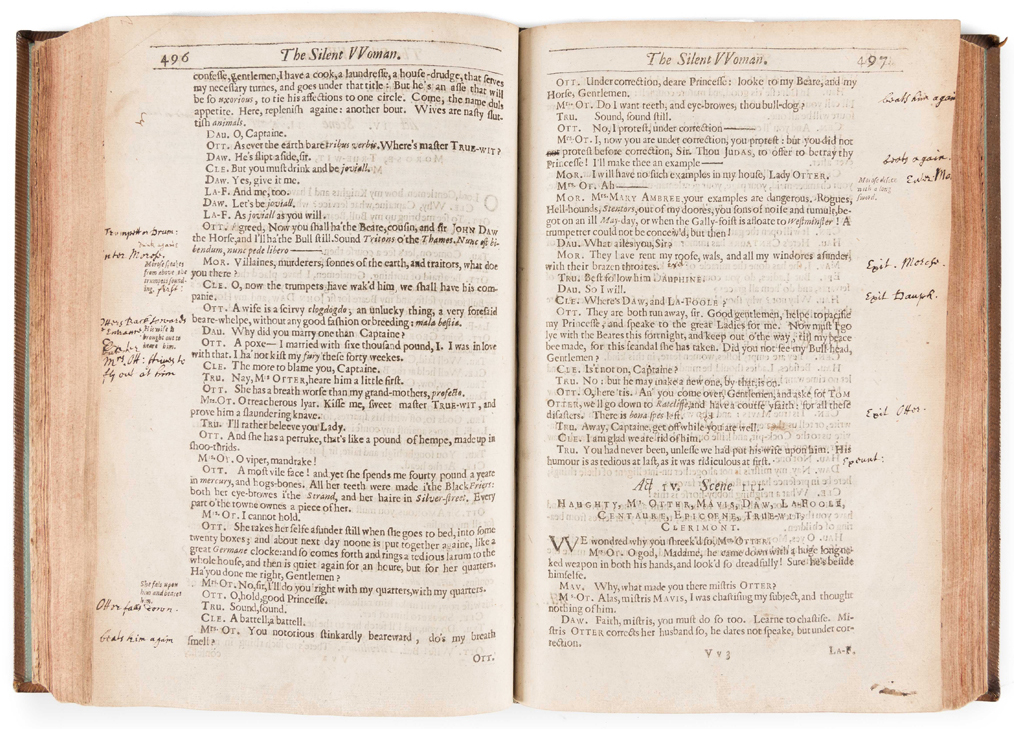 496 The Silent VVoman.
confesse, gentlemen, I have a cook, a laundresse, a house-drudge, that serves
my necessary turnes, and goes under that title: But he's an asse that will
be so uxorious, to tie his affections to one circle. Come, the name duls
appetite. Here, replenish againe: another bout. Wives are nasty slut-
tish animals.
DAU. O, Captaine.
OTT. As ever the earth bare tribus verbis. Where's master TRUE-WIT?
DAW. He's slipt aside, sir.
CLE. But you must drink and be joviall.
DAW. Yes, give it me.
LA-F. And me, too.
DAW. Let's be joviall.
LA-F. As joviall as you will.
OTT. Agreed, Now you shall ha' the Beare, cousin, and sir JOHN DAW
the Horse, and I'll ha' the Bull still. Sound Tritons o' the Thames. Nunc est bi-
bendum, nunc pede libero
MOR. Villaines, murderers, sonnes of the earth, and traitors, what doe
you there?
CLE. O, now the trumpets have wak'd him, we shall have his com-
panie.
OTT. A wife is a scirvy clogdogdo; an unlucky thing, a very foresaid
beare-whelpe, without any good fashion or breeding: mala bestia.
DAU. Why did you marry one than Captaine?
OTT. A poxe— I married with sixe thousand pound, I. I was in love
with that. I ha' not kist my fury these forty weekes.
CLE. The more to blame you, Captaine.
TRU. Nay, Ms OTTER, heare him a little first.
OTT. She has a breath worse than my grand-mothers, profecto.
Ms. OT. O treacherous lyar. Kisse me, sweet master TRUE-WIT, and
prove him a slaundering knave.
TRU. I'll rather beleeve you Lady.
OTT. And she has a perruke, that's like a pound of hempe, made up in
shoo-thrids.
Ms. OT. O viper, mandrake!
OTT. A most vile face! and yet she spends me fourty pound a yeare
in mercury, and hogs-bones. All her teeth were made i' the Black Friers:
both her eye-browes i' the Strand, and her haire in Silver-street. Every
part o' the towne ownes a piece of her.
Ms. OT. I cannot hold.
OTT. She takes her selfe asunder still when she goes to bed, into some
twenty boxes; and about next day noone is put together againe, like a
great Germane clocke: and so comes forth and rings a tedious larum to the
whole house, and then is quiet again for an houre, but for her quarters.
Ha' you done me right, Gentlemen?
Ms. OT. No, sir, I'll do you right with my quarters, with my quarters.
OTT. O, hold, good Princesse.
TRU. Sound, sound.
CLE. A battell, a battell.
Ms. OT. You notorious stinkardly beareward, do's my breath
smell?
OTT.
Morose speakes
from above, the
trumpets sound-
ing.
His wife is
brought out to
heare him.
Mrs. Ott: strives to
fly out at him
She fals upon
him and beates
him.
Otter falls down.
beats him again
The Silent VVoman. 497
OTT. Under correction, deare Princesse: looke to my Beare, and my
Horse, Gentlemen.
Ms. OT. Do I want teeth, and eye-browes, thou bull-dog?
TRU. Sound, sound still.
OTT. No, I protest, under correction—
Ms. OT. I, now you are under correction, you protest: but you did not
protest before correction, Sir. Thou JUDAS, to offer to betray thy
Princesse! I'll make thee an example—
MOR. I will have no such examples in my house, Lady OTTER.
Ms. OT. Ah—
MOR. Ms. MARY AMBREE, your examples are dangerous. Rogues,
Hell-hounds, Stentors, out of my doores, you sons of noise and tumult, be-
got on an ill May-day, or when the Gally-foist is afloate to Westminster! A
trumpetter could not be conceiv'd, but then!
DAU. What ailes you, Sir?
MOR. They have rent my roofe, wals, and all my windores asunder,
with their brazen throites.
TRU. Best follow him DAUPHINE.
DAU. So I will.
CLE. Where's DAW, and LA-FOOLE?
OTT. They are both run away, sir. Good gentlemen, helpe to pacifie
my Princesse, and speake to the great Ladies for me. Now must I go
lye with the Beares this fortnight, and keep out o' the way, till my peace
bee made, for this scandal she has taken. Did you not see my Bull-head,
Gentlemen?
CLE. Is't not on, Captaine?
TRU. No: but he may make a new one, by that, is on.
OTT. O, here 'tis. An' you come over, Gentlemen, and aske for TOM
OTTER, we'll go down to Ratcliffe, and have a course ysaith: for all these
disasters. There is bona spes left.
TRU. Away, Captaine, get off while you are well.
CLE. I am glad we are rid of him.
TRU. You had never been, unlesse we had put his wife upon him. His
humour is as tedious at last, as it was ridiculous at first.
beats him again
beats again.
Exit. Morose.
Exit Dauph.
Exit Otter.
Exeunt:
Act IV. Scene III.
HAUGHTY, Ms OTTER, MAVIS, DAW, LA-FOOLE,
CENTAURE, EPICOENE, TRUE-WIT,
CLERIMONT.
WE wondred why you shreek'd so, Ms OTTER.
Ms. OT. O god, Madame, he came down with a huge long na-
ked weapon in both his hands, and look'd so dreadfully! Sure he's beside
himselfe.
MAV. Why, what made you there mistris OTTER?
Ms. OT. Alas, mistris MAVIS, I was chastising my subject, and thought
nothing of him.
DAW. Faith, mistris, you must do so too. Learne to chastise. Mi-
stris OTTER corrects her husband so, he dares not speake, but under cor-
rection.
V v 3 LA-F.